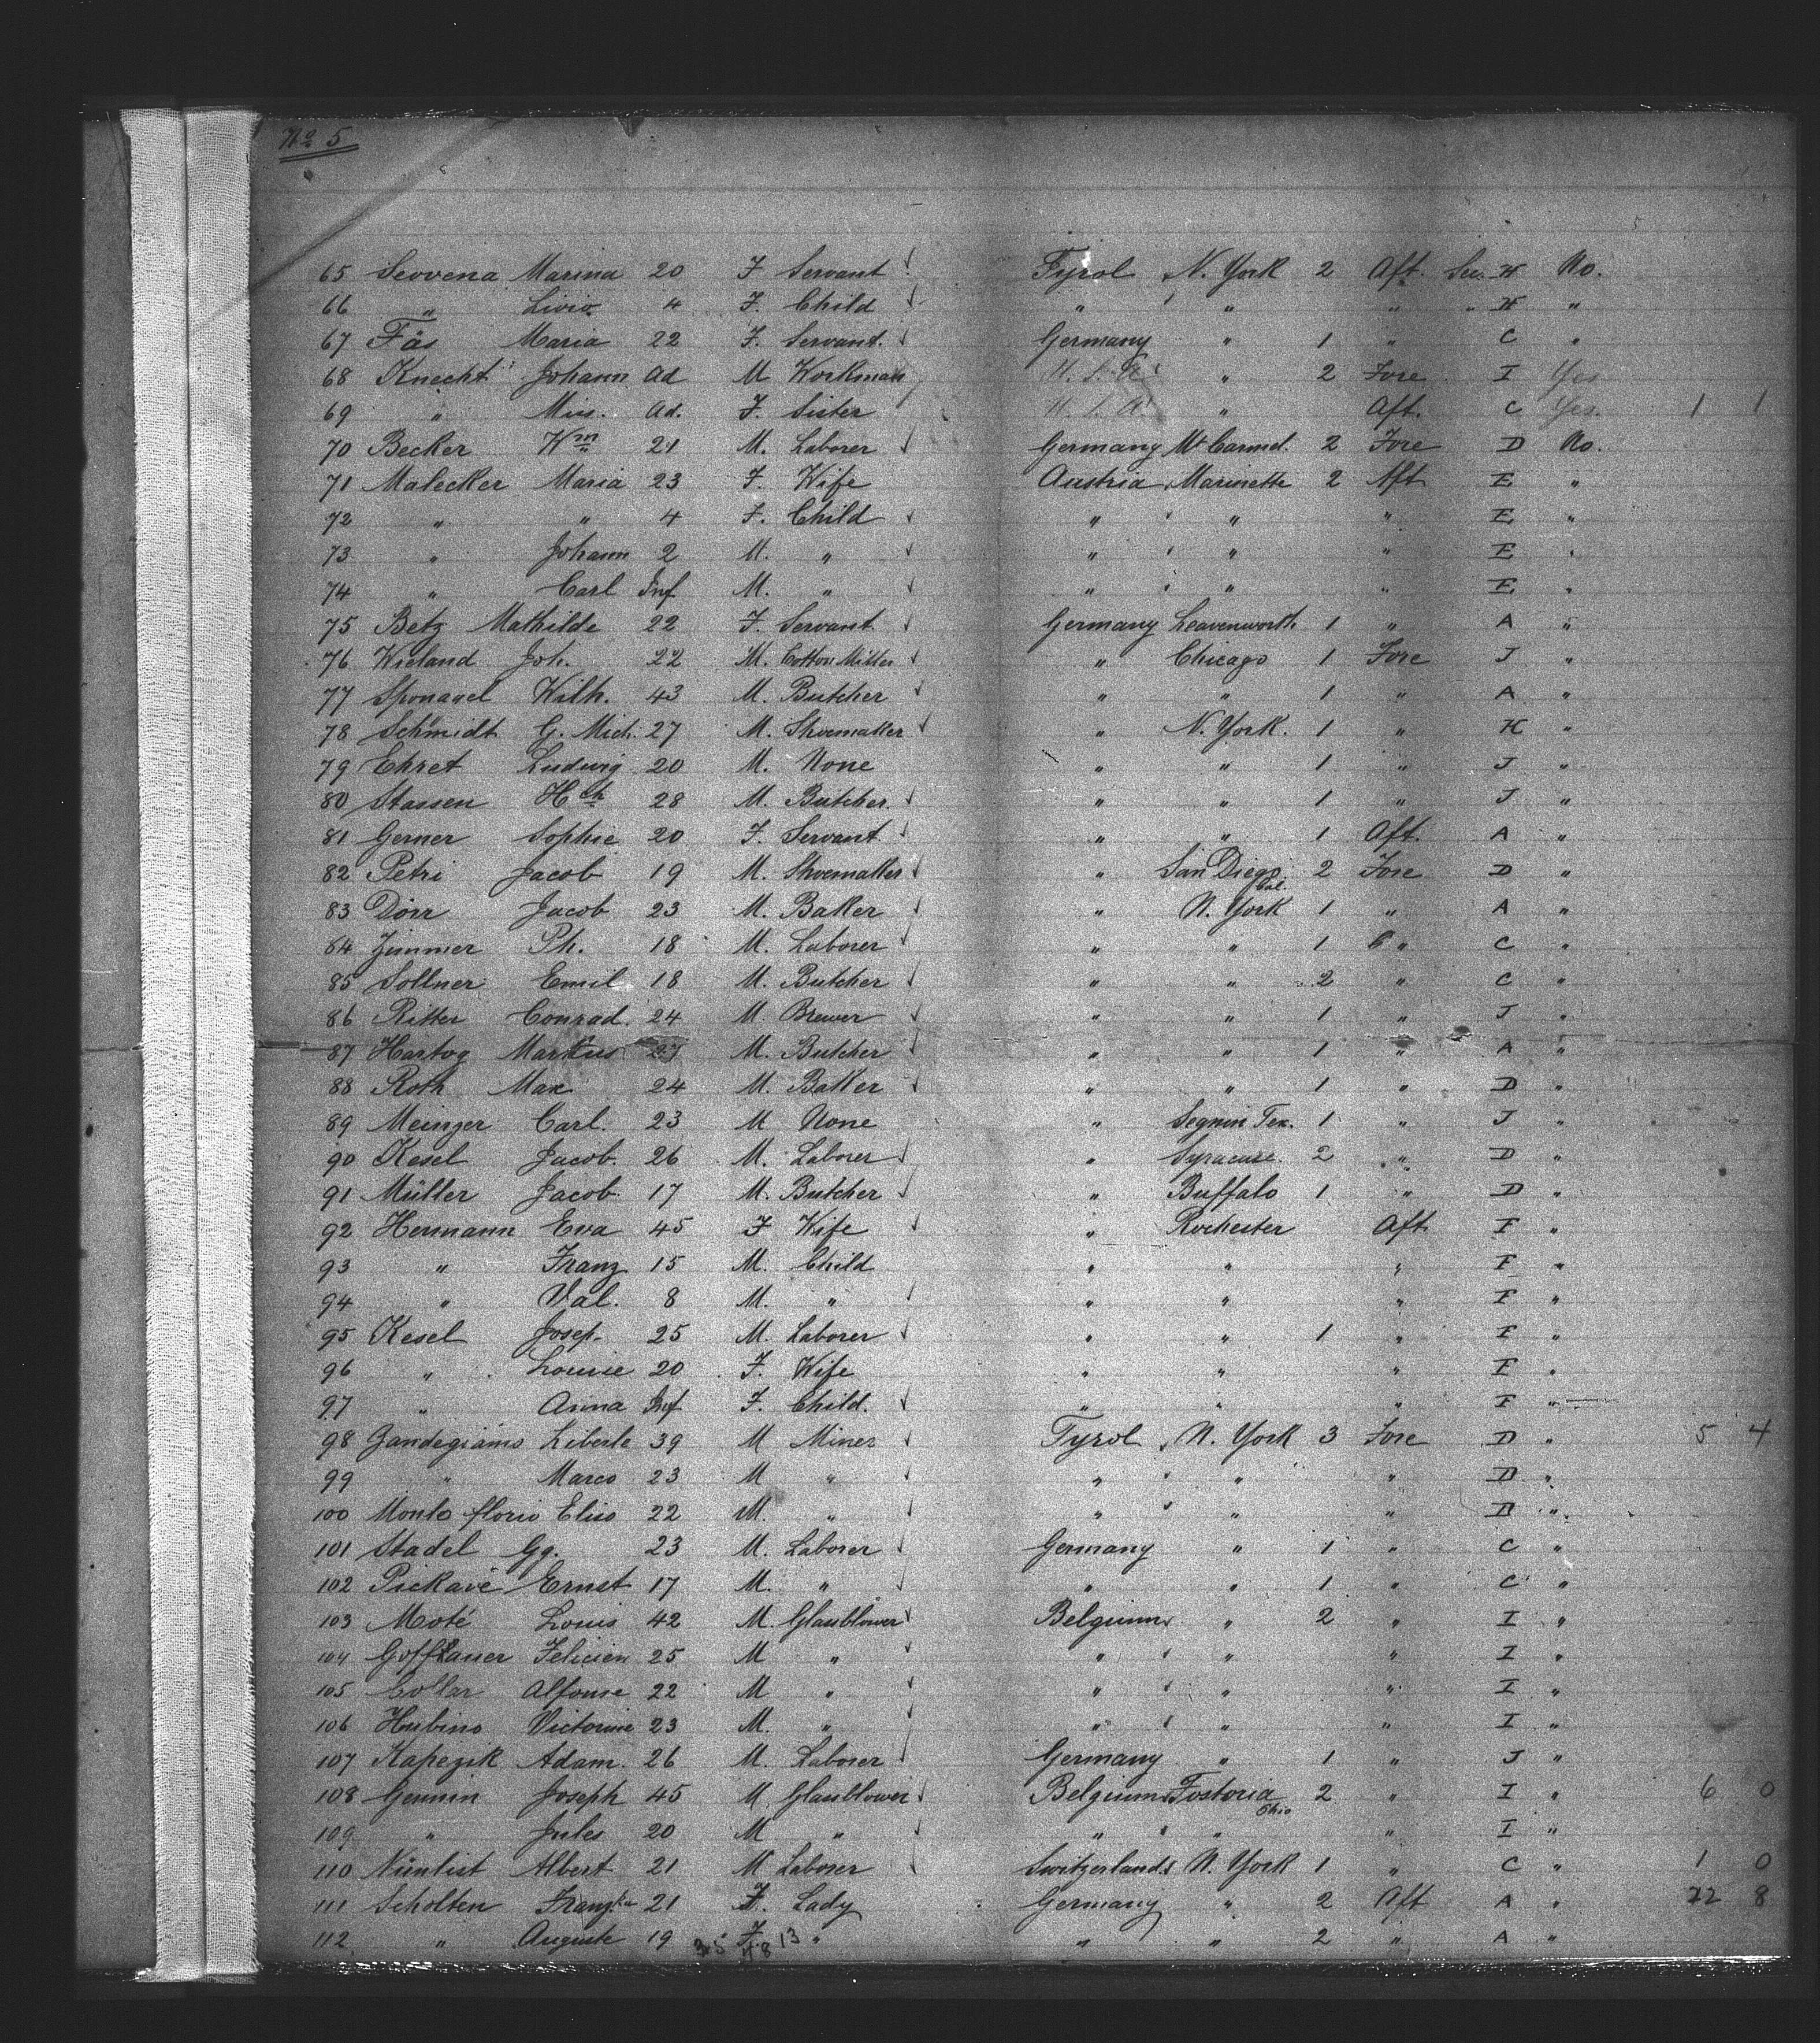 No 5
65 Sevvena Marina 20 F Servant Tyrol N. York 2 Aft. H No.
66 " Livio 4 F. Child " " " " H "
67 Fäs Maria 22 F. Servant. Germany " 1 " C "
68 Knecht Johann Ad M Workman U. S. A. " 2 Fore I Yes
69 " Ad. F. Sister U. S. A. " Aft. C Yes. 1 1
70 Becker Wm 21 M. Laborer Germany Mt Carmel. 2 Fore D No.
71 Malecker Maria 23 F. Wife Austria Marinette 2 Aft E "
72 " " 4 F. Child " " " E "
73 " Johann 2 M. " " " " E "
74 " Carl Inf M. " " " " E "
75 Betz Mathilde 22 F. Servant. Germany Leavenworth. 1 " A "
76 Wieland Joh. 22 M. Cotton Miller " Chicago 1 Fore J "
77 Sponagel Wilh. 43 M. Butcher " " 1 " A "
78 Schmidt G. Mich. 27 M. Shoemaker " N. York. 1 " H "
79 Ehret Ludwig 20 M. None " " 1 " J "
80 Stassen Hch 28 M. Butcher. " " 1 " J "
81 Gerner Sophie 20 F. Servant " " 1 Aft. A "
82 Petri Jacob 19 M. Shoemaker " San Diego Cal. 2 Fore D "
83 Dörr Jacob 23 M. Baker " N. York 1 " A "
84 Zimmer Ph. 18 M. Laborer " " 1 " C "
85 Sollner Emil 18 M. Butcher " " 2 " C "
86 Ritter Conrad. 24 M Brewer " " 1 " J "
87 Hartog Markus 27 M. Butcher " " 1 " A "
88 Roth Max 24 M. Baker " " 1 " D "
89 Meinzer Carl. 23 M None " Seguin Tex. 1 " J "
90 Kesel Jacob. 26 M. Laborer " Syracuse. 2 " D "
91 Müller Jacob 17 M. Butcher " Buffalo 1 " D "
92 Hermann Eva 45 F Wife " Rochester Aft. F "
93 " Franz 15 M. Child " " " F "
94 " Val. 8 M. " " " " F "
95 Kesel Josef 25 M. Laborer " " 1 " F "
96 " Louise 20 F. Wife " " " F "
97 " Anna Inf F. Child. " " " F "
98 Zandegiamo Liberle 39 M Miner Tyrol N. York 3 Fore D " 5 4
99 " Marco 23 M " " " " D "
100 Monteflorio Eliso 22 M. " " " " D "
101 Stadel Gg. 23 M. Laborer Germany " 1 " C "
102 Pickavé Ernst 17 M. " " " 1 " C "
103 Moté Louis 42 M. Glassblower Belgium " 2 " I "
104 Felicien 25 M " " " " I "
105 Collar Alfonse 22 M " " " " I "
106 Hubino Victorine 23 M. " " " " I "
107 Kapczik Adam. 26 M. Laborer Germany " 1 " J "
108 Gennin Joseph 45 M Glassblower Belgium Fostoria Ohio 2 " I " 6 0
109 " Jules 20 M " " " " I "
110 Nünlist Albert 21 M Laborer Switzerland N. York 1 " C " 1 0
111 Scholten Franzka 21 F. Lady Germany " 2 Aft A " 22 8
112 " Auguste 19 F. " " " 2 " A "
35 48 13